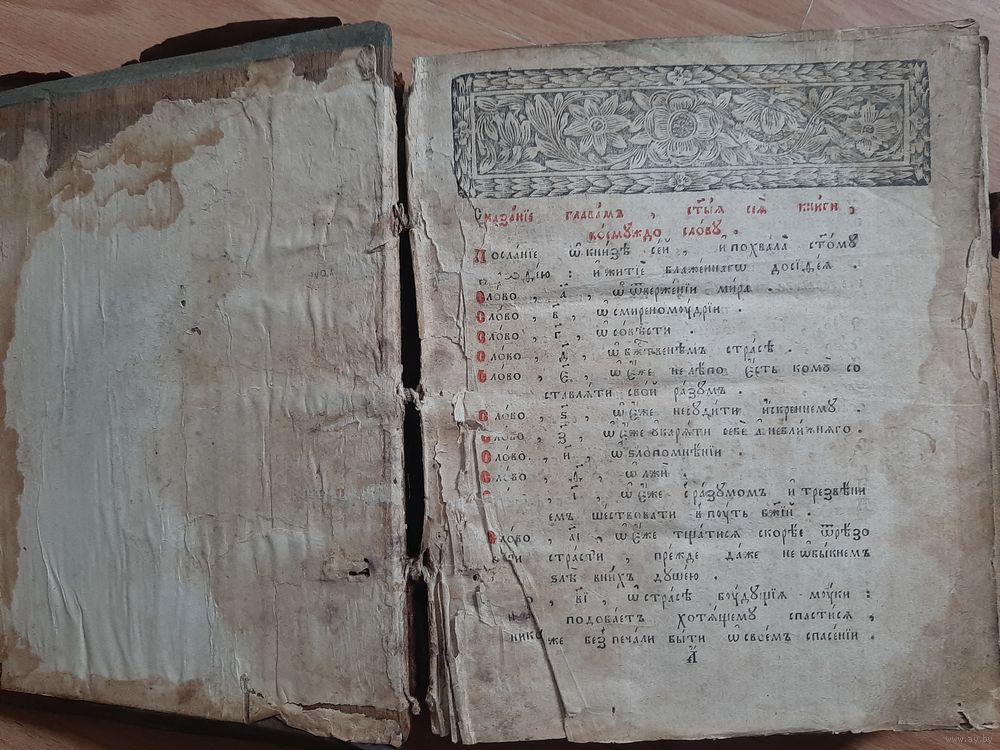 Сказа́нїе главамъ , ст҃ы́ѧ сеѧ̀ книги ,
коемꙋждо сло́вꙋ .
Посла́нїе ѡ҆ кни́зѣ се́й , и҆ похвала̀ ст҃о́мꙋ
и҆ житїѐ блаже́ннагѡ досіѳе́ѧ .
Сло́во , а҃ , ѡ҆ ѿверже́нїи мі́ра .
Сло́во , в҃ , ѡ҆ смиреномꙋ́дрїи .
Сло́во , г҃ , ѡ҆ со́вѣсти .
Сло́во , д҃ , ѡ҆ бж҃твенѣмъ стра́сѣ .
Сло́во , є҃ , ѡ҆ є҆́же не лѣ́по є҆́сть комꙋ̀ со
ставлѧ́ти сво́й ра́зꙋм .
Сло́во , ѕ҃ , ѡ҆ є҆́же не сꙋди́ти и҆́скреннемꙋ .
Сло́во , з҃ , ѡ҆ є҆́же ᲂу҆карѧ́ти себѐ а҆ не бли́жнѧго .
Сло́во , и҃ , ѡ҆ ѕлопомнѣ́нїи .
Сло́во , ѳ҃ , ѡ҆ лжѝ .
і҃ , ѡ҆ є҆́же с ра́зꙋмомъ и҆ тре́звѣни
емъ ше́ствовати в пꙋ́ть бж҃їй .
Сло́во , а҃і , ѡ҆ є҆́же тща́тисѧ скорѣ́е ѿрѣзо
стра́сти , пре́жде да́же не ѡ҆бы́кнемъ
ѕлѣ̀ в ни́хъ дꙋше́ю .
в҃і , ѡ҆ стра́сѣ бꙋ́дꙋщїѧ мꙋ́ки :
подоба́етъ хотѧ́щемꙋ спасти́сѧ ,
без̾ печа́ли бы́ти ѡ҆ свое́мъ спасе́нїи .
а҃
www.ay.by